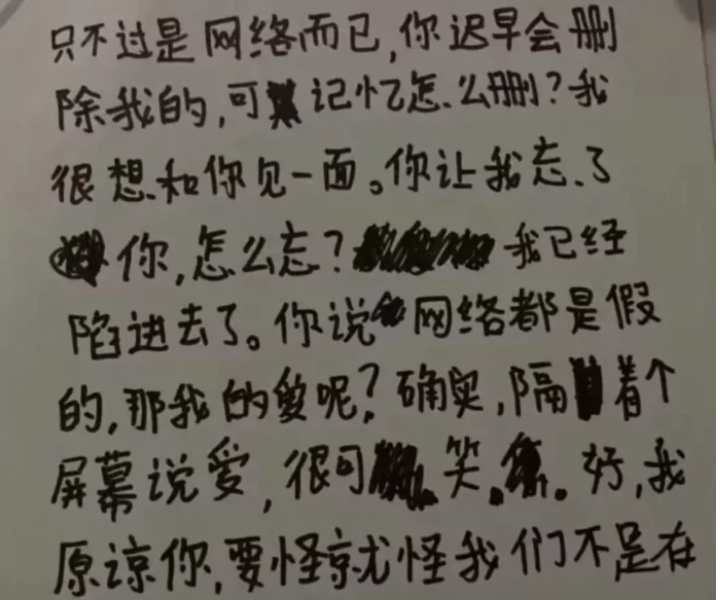 只不过是网络而已，你迟早会删
除我的，可记忆怎么删？我
很想和你见一面。你让我忘了
你，怎么忘？我已经
陷进去了。你说网络都是假
的，那我的爱呢？确实，隔着个
屏幕说爱，很可笑。好，我
原谅你，要怪就怪我们不是在